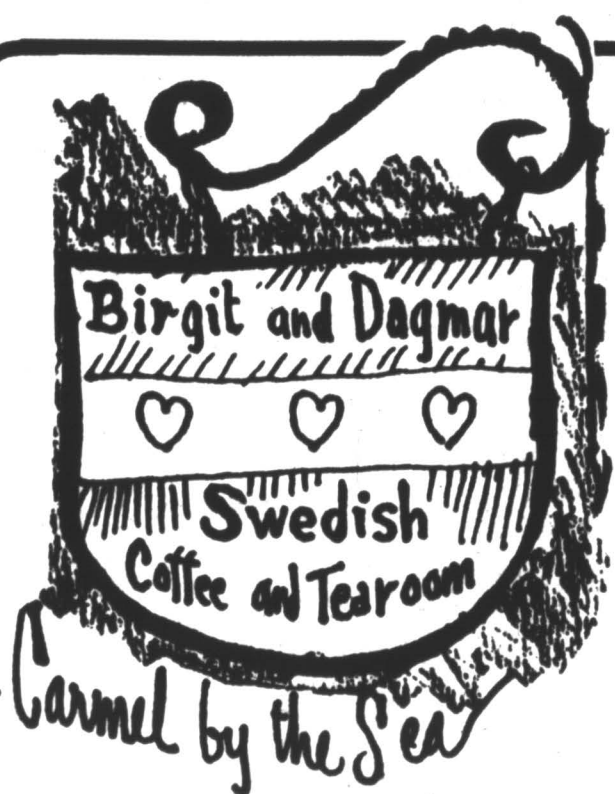 Birgit and Dagmar
Swedish
Coffee and Tearoom
Carmel by the Sea